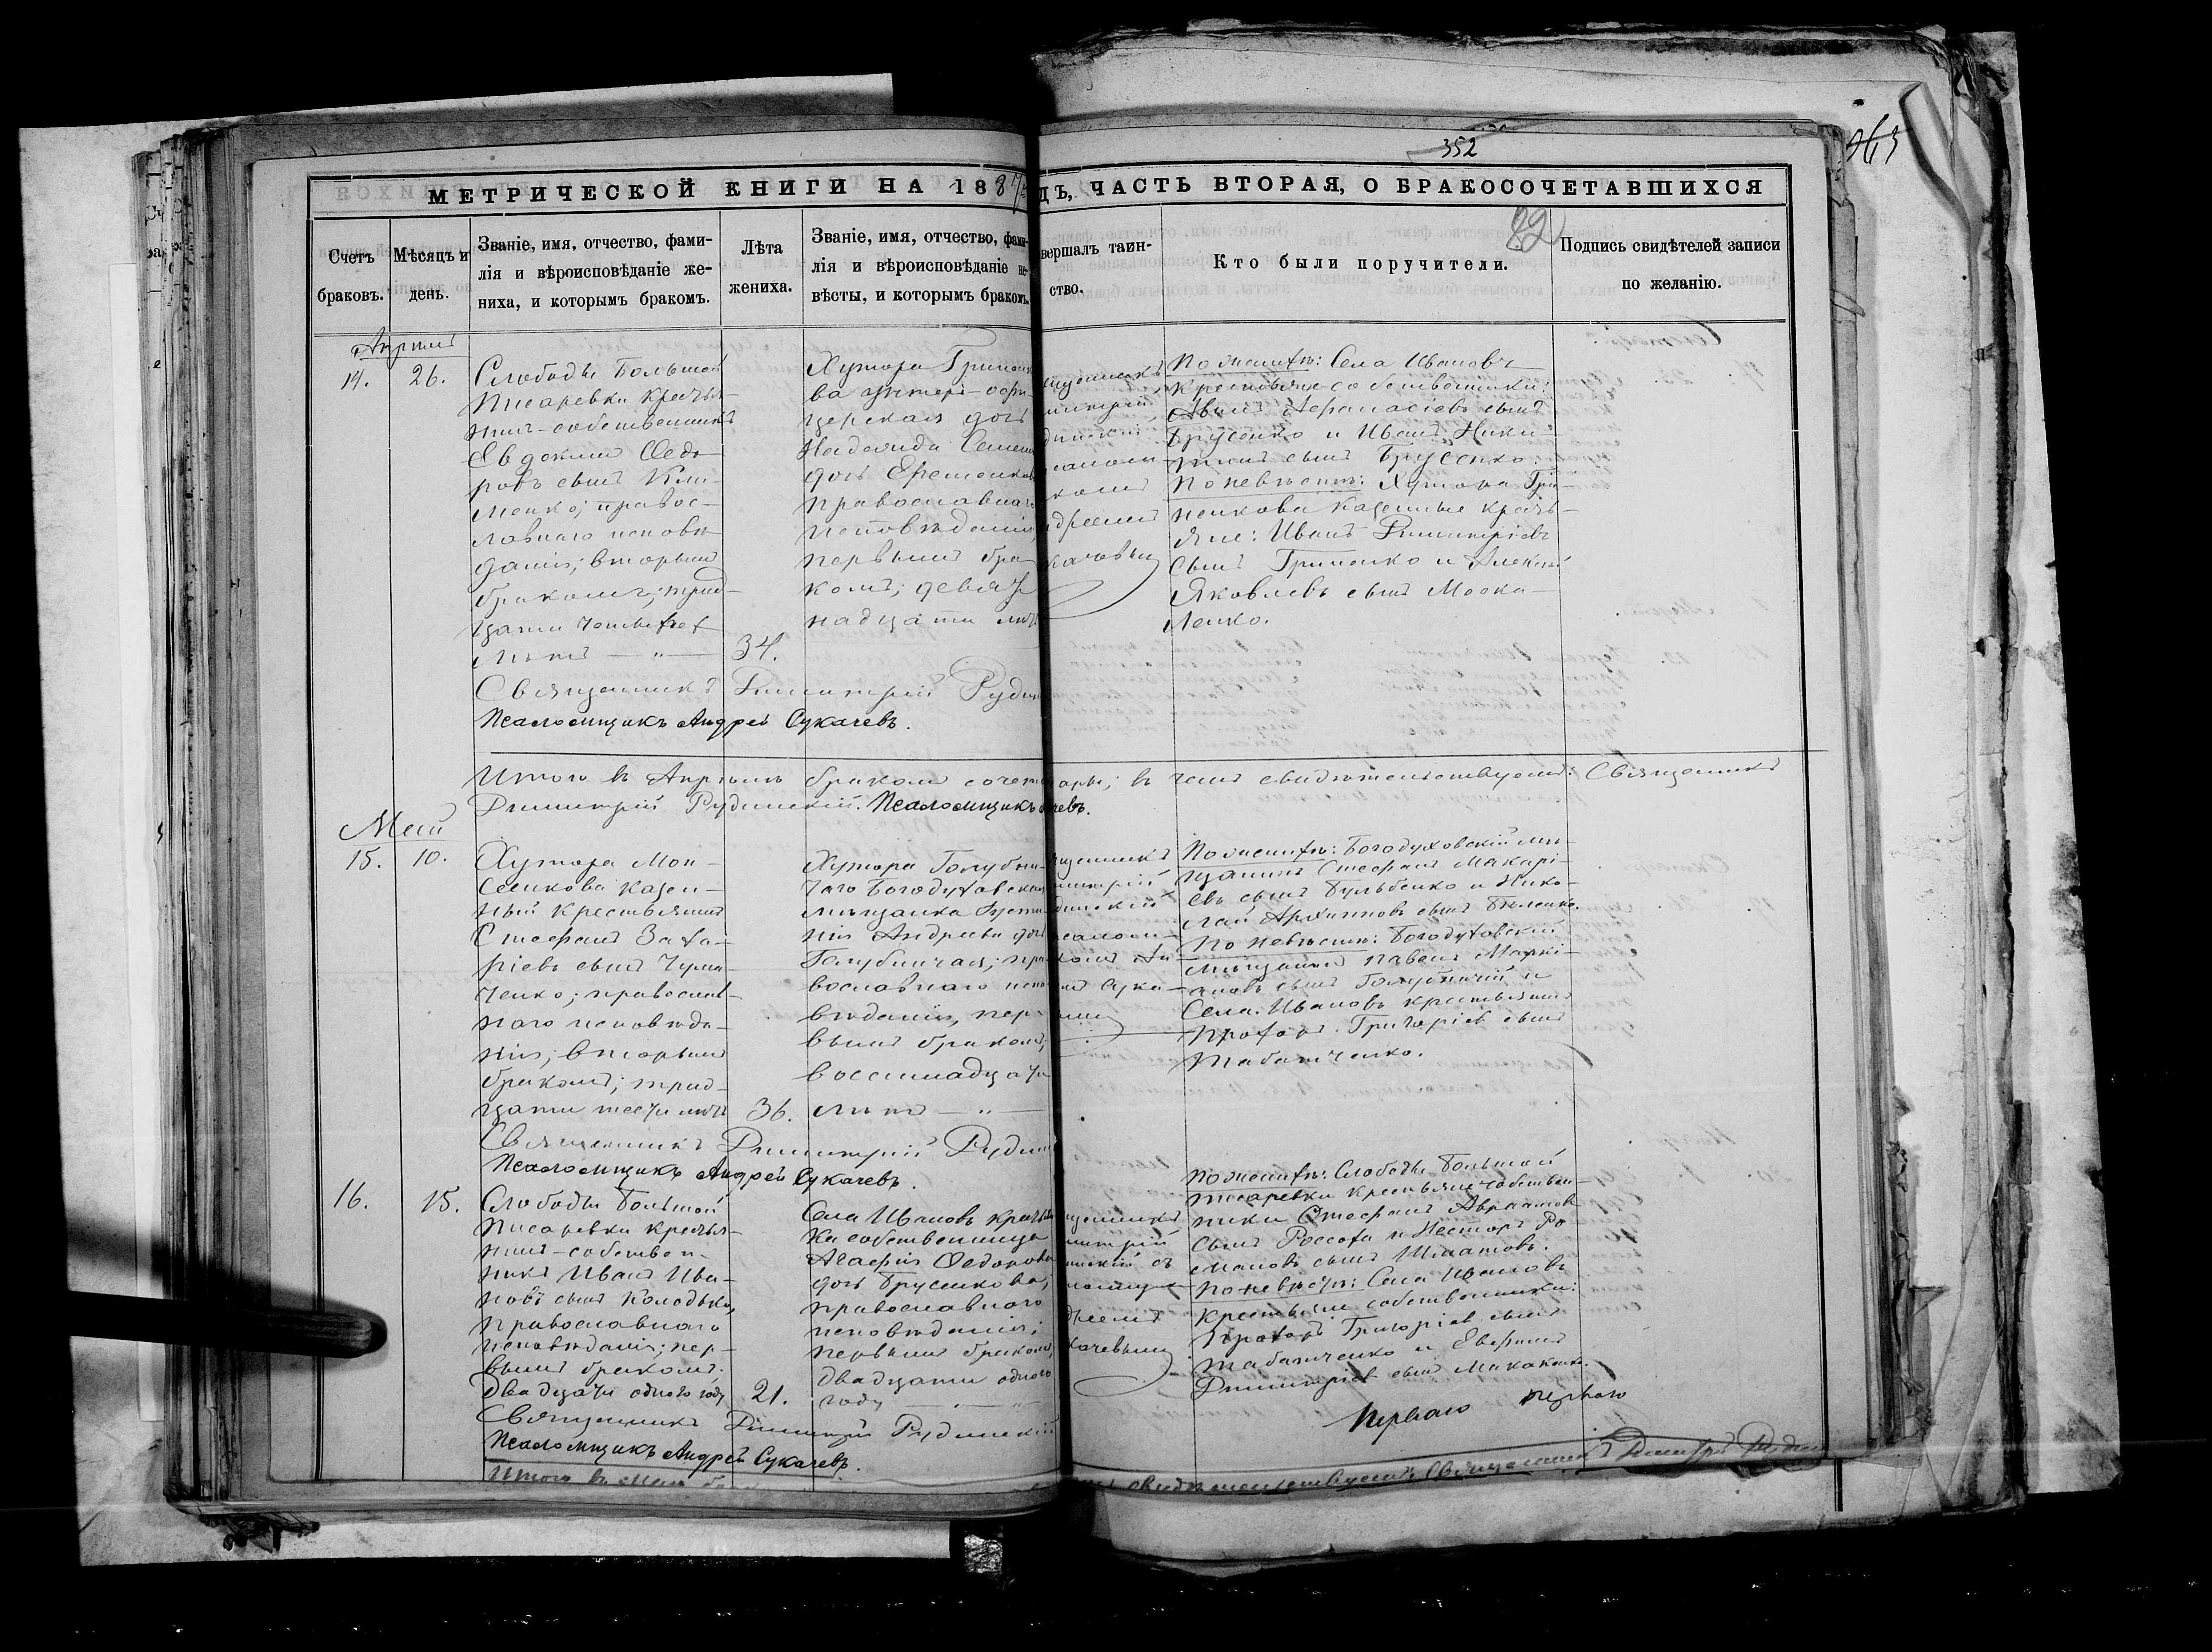 352
МЕТРИЧЕСКОЙ КНИГИ НА 1887
ДЪ, ЧАСТЬ ВТОРАЯ, О БРАКОСОЧЕТАВШИХСЯ
Счетъ браковъ.
Мѣсяцъ и день.
Званіе, имя, отчество, фами-
лія и вѣроисповѣданіе же-
ниха, и которымъ бракомъ.
Лѣта
жениха.
Званіе, имя, отчество, фами-
лія и вѣроисповѣданіе не-
вѣсты, и которымъ бракомъ.
вершалъ таин-
ство.
Кто были поручители.
Подпись свидѣтелей записи
по желанію.
Апрѣль
14. 26.
Слободы Большой
Писаревки крестья-
нинъ-собственникъ
Евдокимъ Ѳедо-
ровъ сынъ Кли-
менко; правос-
лавнаго исповѣ-
данія; вторымъ
бракомъ; трид-
цати четырехъ
лѣтъ — " —
34.
Хутора Гринен
ва унтеръ-офи-
церская дочь
Надежда Семен
дочь Ефеменков
православнаго
исповѣданія
первымъ бра-
комъ; девят
надцати лѣтъ
щенникъ
митрій
динскій
псалом
комъ
ндреемъ
качевым
По женихѣ: Села Ивановъ
крестьяне собственники:
Аѳанасіевъ сынъ
Брусенко и Иванъ Ники-
тинъ сынъ Брусенко.
По невѣстѣ: Хутора Гри-
ненкова казенные кресть-
яне: Иванъ Димитріевъ
сынъ Гриненко и Алексѣй
Яковлевъ сынъ Моска-
ленко.
Священникъ Димитрій Рудин
Псаломщикъ Андрей Сукачевъ.
Итого въ Апрѣлѣ бракомъ сочет
; въ чемъ свидѣтельствуемъ: Священникъ
Димитрій Рудинскій. Псаломщикъ
чевъ.
Май
15. 10.
Хутора Мои-
сеенкова казен-
ный крестьянинъ
Стефанъ Заха-
ріевъ сынъ Чума-
ченко; православ-
наго исповѣда-
нія; вторымъ
бракомъ; трид-
цати шести лѣтъ
36.
Хутора Голубни-
чаго Богодуховская
мѣщанка Іусти-
нія Андреева дочь
Голубничая; пра-
вославнаго испо
вѣданія, пер-
вымъ бракомъ;
восемнадцати
лѣтъ — " —
щенникъ
митрій
динскій
псалом-
комъ Ан-
емъ Сука-
вымъ
По женихѣ: Богодуховскій мѣ-
щанинъ Стефанъ Макарі-
евъ сынъ Бульбенко и Нико-
лай Архиповъ сынъ Бѣленко.
По невѣстѣ: Богодуховскій
мѣщанинъ Павелъ Маркі-
ановъ сынъ Голубничій и
Села Ивановъ крестьянинъ
Прохоръ Григоріевъ сынъ
Табатченко.
Священникъ Димитрій Рудин
Псаломщикъ Андрей Сукачевъ.
16. 15.
Слободы Большой
Писаревки крестья-
нинъ-собствен-
никъ Иванъ Ива-
новъ сынъ Колодько,
православнаго
исповѣданія; пер-
вымъ бракомъ;
двадцати одного году
21.
Села Ивановъ крестьян
ка собственница
Агафія Ѳедорова
дочь Брусенкова;
православнаго
исповѣданія;
первымъ бракомъ,
двадцати одного
году — " —
щенникъ
митрій
инскій съ
ломщи
дреемъ
качевымъ
По женихѣ: Слободы Большой
Писаревки крестьяне собствен-
ники Стефанъ Авраамов
сынъ Россоха и Несторъ Ро-
мановъ сынъ Шматовъ.
По невѣстѣ: Села Ивановъ
крестьяне собственники:
Прохоръ Григоріевъ сынъ
Табатченко и Евфимъ
Димитріевъ сынъ
Священникъ Димитрій Рудинскій
Псаломщикъ Андрей Сукачевъ.
Итого въ Маѣ
свидѣтельствуемъ: Священникъ Димитрій